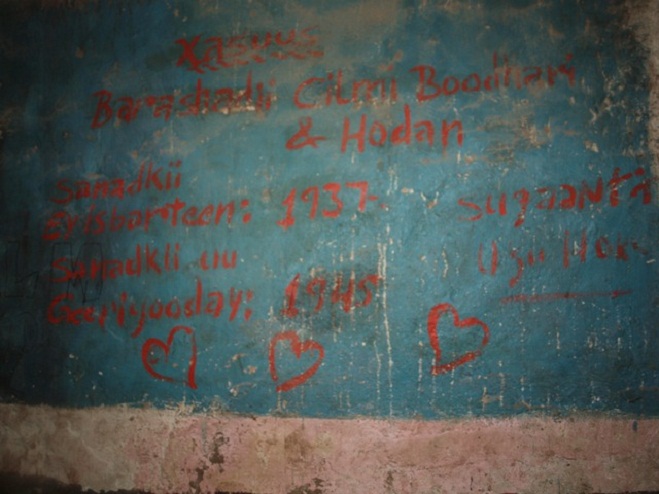 Xasuus
Barashadii Cilmi Boodhari
& Hodan
Sanadkii
Erisbarteen: 1937
Sanadkii uu
Geeriyooday: 1945
sugaanti
ugu